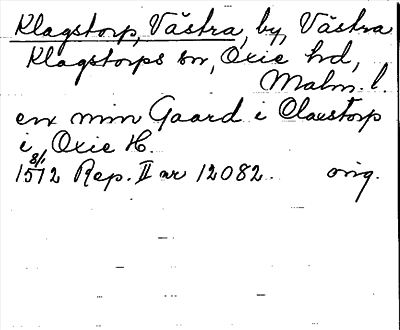 Klagstorp, Västra, by, Västra
Klagstorps sn, Oxie hd,
Malm. l.
en min Gaard i Claxstorp
i Oxie H.
8/1
1512 Rep. II nr 12082. orig.